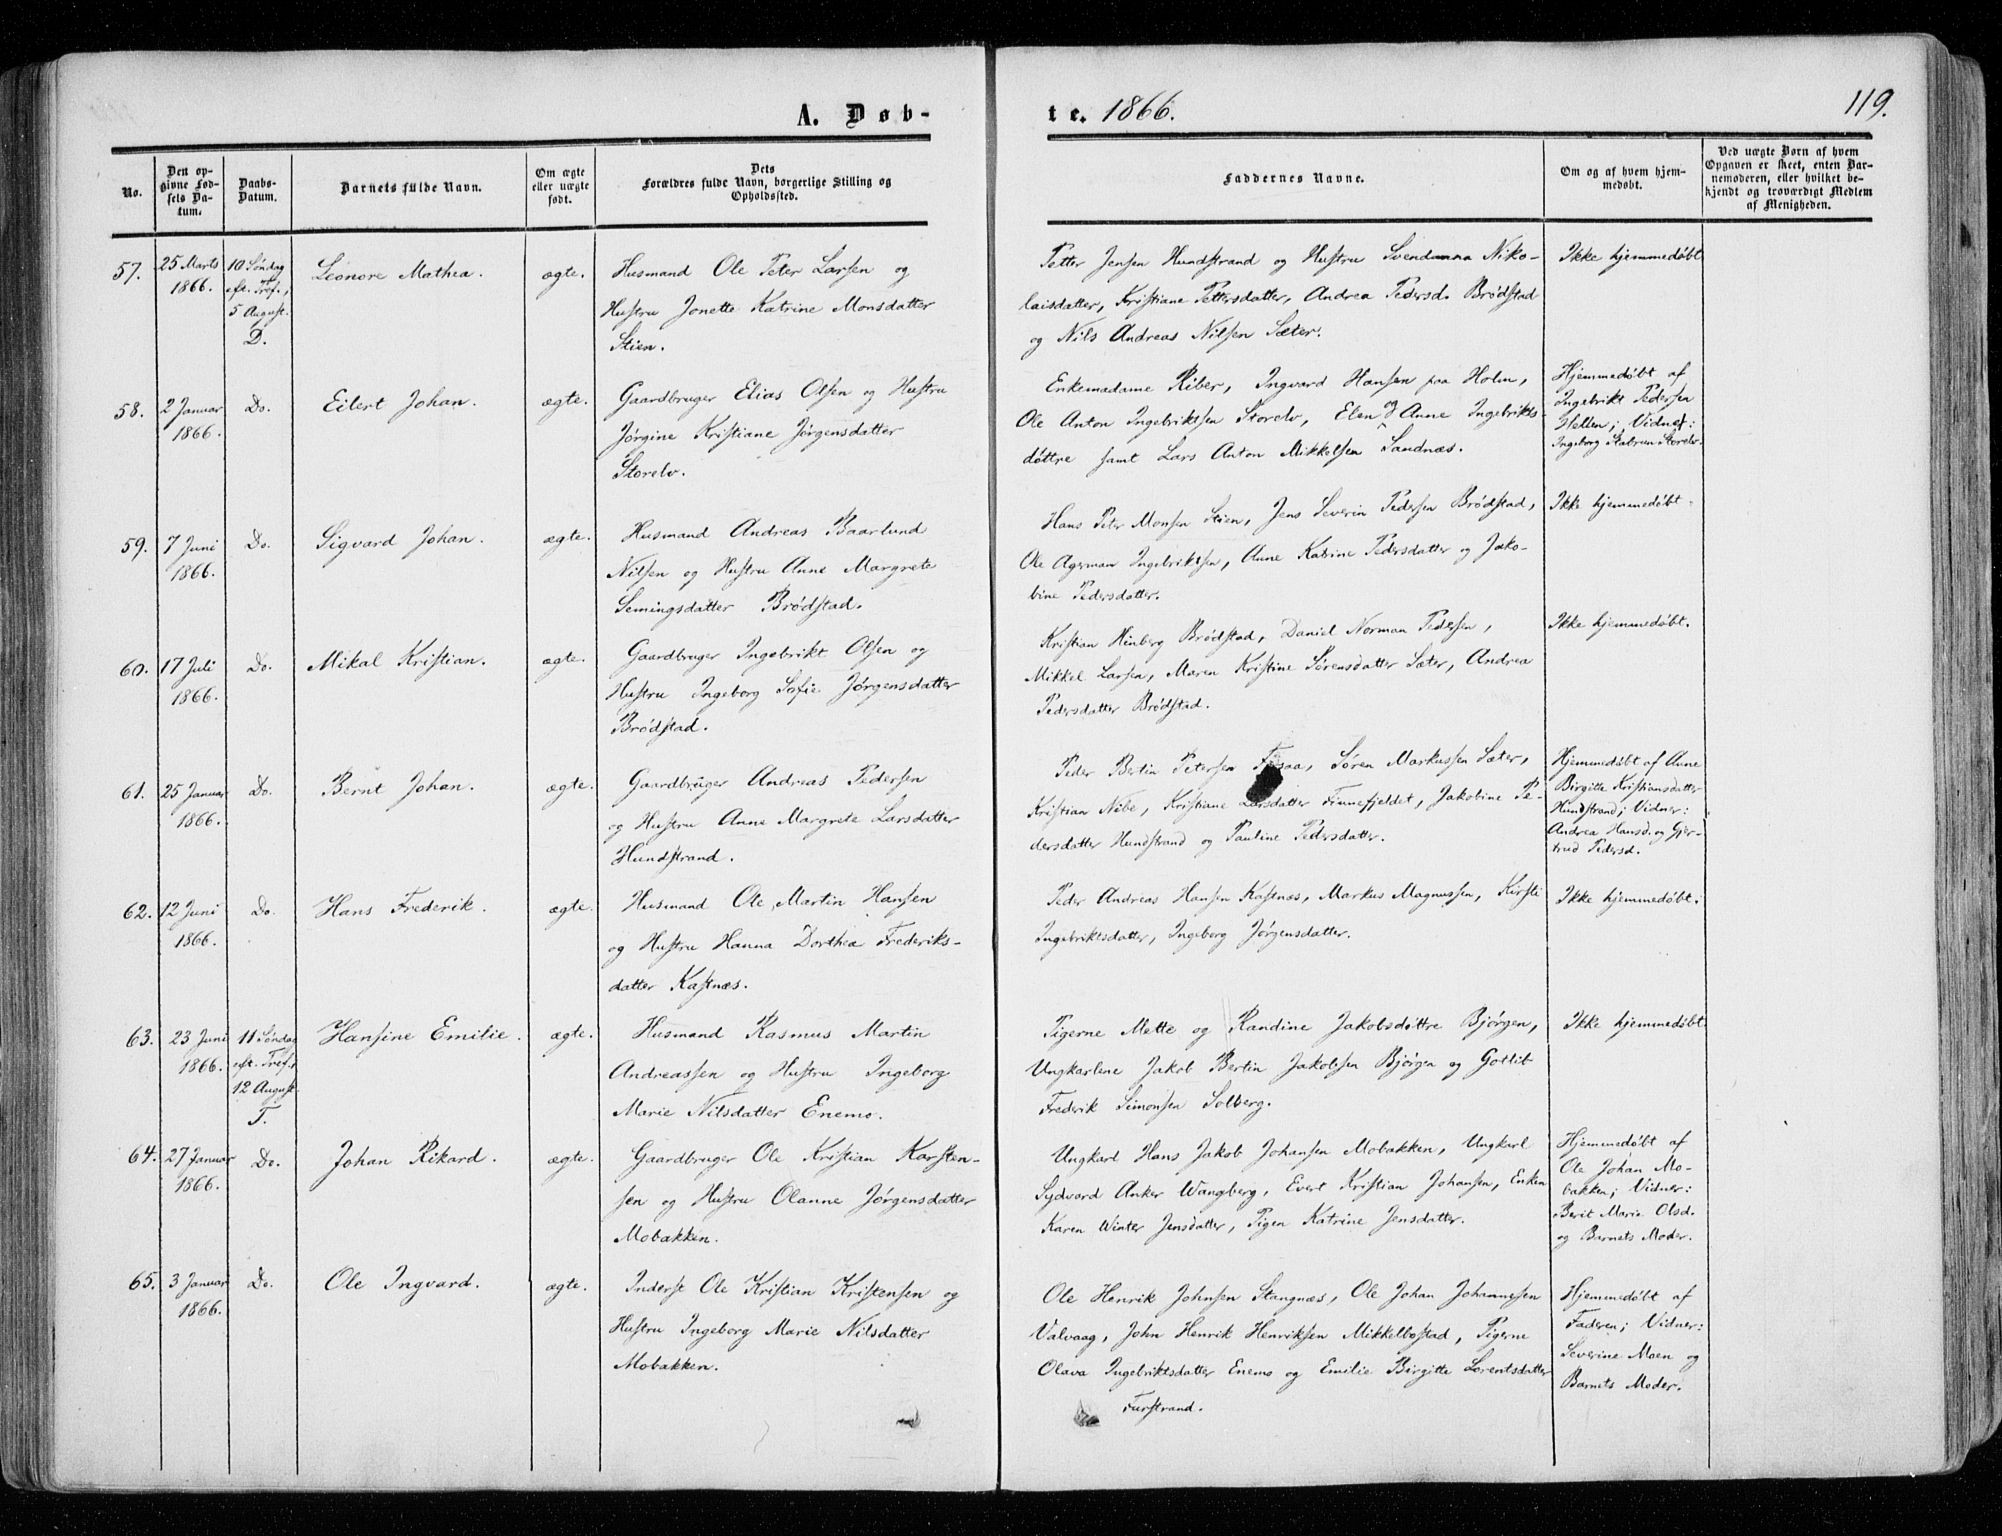 A. Døb-
te. 1866.
119.
No.
Den op-
givne Fød-
sels Da-
tum.
Daabs-
Datum.
Barnets fulde Navn.
Om ægte
eller uægte
født.
Dets
Forældres fulde Navn, borgerlige Stilling og
Opholdssted.
Faddernes Navne.
Om og af hvem hjem-
medøbt.
Ved uægte Børn af hvem
Opgaven er skeet, enten Bar-
nemoderen, eller hvilket be-
kjendt og troværdigt Medlem
af Menigheden.
57.
25 Marts
1866.
10 Søndag
eft. Tref.,
5 August.
D.
Leonore Mathea.
ægte.
Husmand Ole Peter Larsen og
Hustru Jonette Katrine Monsdatter
Stien.
Petter Jensen Hundstrand og Hustru Svendmana Niko-
laisdatter, Kristiane Pettersdatter, Andrea Pedersd. Brødstad
og Nils Andreas Nilsen Sæter.
Ikke hjemmedøbt
58.
2 Januar
1866.
Do.
Eilert Johan.
ægte.
Gaardbruger Elias Olsen og Hustru
Jørgine Kristiane Jørgensdatter
Storelv.
Enkemadame Riber, Ingvard Hansen paa Holm,
Ole Anton Ingebriktsen Storelv, Elen og Anne Ingebrikts-
døttre samt Lars Anton Mikkelsen Sandnæs.
Hjemmedøbt af
Ingebrikt Pedersen
Hellen; Vidner:
Ingeborg Katrine Storelv.
59.
7 Juni
1866.
Do.
Sigvard Johan.
ægte.
Husmand Andreas Baarlund
Nilsen og Hustru Anne Margrete
Semingsdatter Brødstad.
Hans Peter Monsen Stien, Jens Severin Pedersen Brødstad,
Ole Agerman Ingebriktsen, Anne Katrine Pedersdatter og Jako-
bine Pedersdatter.
Ikke hjemmedøbt
60.
17 Juli
1866.
Do.
Mikal Kristian.
ægte.
Gaardbruger Ingebrikt Olsen og
Hustru Ingeborg Sofie Jørgensdatter
Brødstad.
Kristian Hinberg Brødstad, Daniel Norman Pedersen,
Mikkel Larsen, Maren Kristine Sørensdatter Sæter, Andrea
Pedersdatter Brødstad.
Ikke hjemmedøbt.
61.
25 Januar
1866.
Do.
Bernt Johan.
ægte.
Gaardbruger Andreas Pedersen
og Hustru Anne Margrete Larsdatter
Hundstrand.
Peder Bertin Petersen Søren Markussen Sæter,
Kristian Nibe, Kristiane Larsdatter Finnefjeldet, Jakobine Pe-
dersdatter Hundstrand og Pauline Pedersdatter.
Hjemmedøbt af Anne
Birgitte Kristiansdatter
Hundstrand; Vidner:
Andrea Hansd. og Gjer-
trud Pedersd.
62.
12 Juni
1866.
Do.
Hans Frederik.
ægte.
Husmand Ole Martin Hansen
og Hustru Hanna Dorthea Frederiks-
datter Kastnæs.
Peder Andreas Hansen Kastnæs, Markus Magnussen, Kirsti
Ingebriktsdatter, Ingeborg Jørgensdatter.
Ikke hjemmedøbt.
63.
23 Juni
1866.
11 Søndag
eft. Tref.,
12 August
T.
Hansine Emilie.
ægte.
Husmand Rasmus Martin
Andreassen og Hustru Ingeborg
Marie Nilsdatter Enemo.
Pigerne Mette og Randine Jakobsdøttre Bjørgen,
Ungkarlene Jakob Bertin Jakobsen Bjørgen og Gottlib
Frederik Simonsen Solberg.
Ikke hjemmedøbt.
64.
27 Januar
1866.
Do.
Johan Rikard.
ægte.
Gaardbruger Ole Kristian Karsten-
sen og Hustru Olanne Jørgensdatter
Mobakken.
Ungkarl Hans Jakob Johansen Mobakken, Ungkarl
Sydvard Anker Wangberg, Evert Kristian Johansen, Enken
Karen Winter Jensdatter, Pigen Katrine Jensdatter.
Hjemmedøbt af
Ole Johan Mo-
bakken; Vidner:
Berit Marie Olsd.
og Barnets Moder.
65.
3 Januar
1866.
Do.
Ole Ingvard.
ægte.
Inderst Ole Kristian Kristensen og
Hustru Ingeborg Marie Nilsdatter
Mobakken.
Ole Henrik Johnsen Stangnæs, Ole Johan Johannesen
Valvaag, John Henrik Henriksen Mikkelbostad, Pigerne
Olava Ingebriktsdatter Enemo og Emilie Birgitte Lorentsdatter
Furstrand.
Hjemmedøbt af
Faderen; Vidner:
Severine Moen og
Barnets Moder.